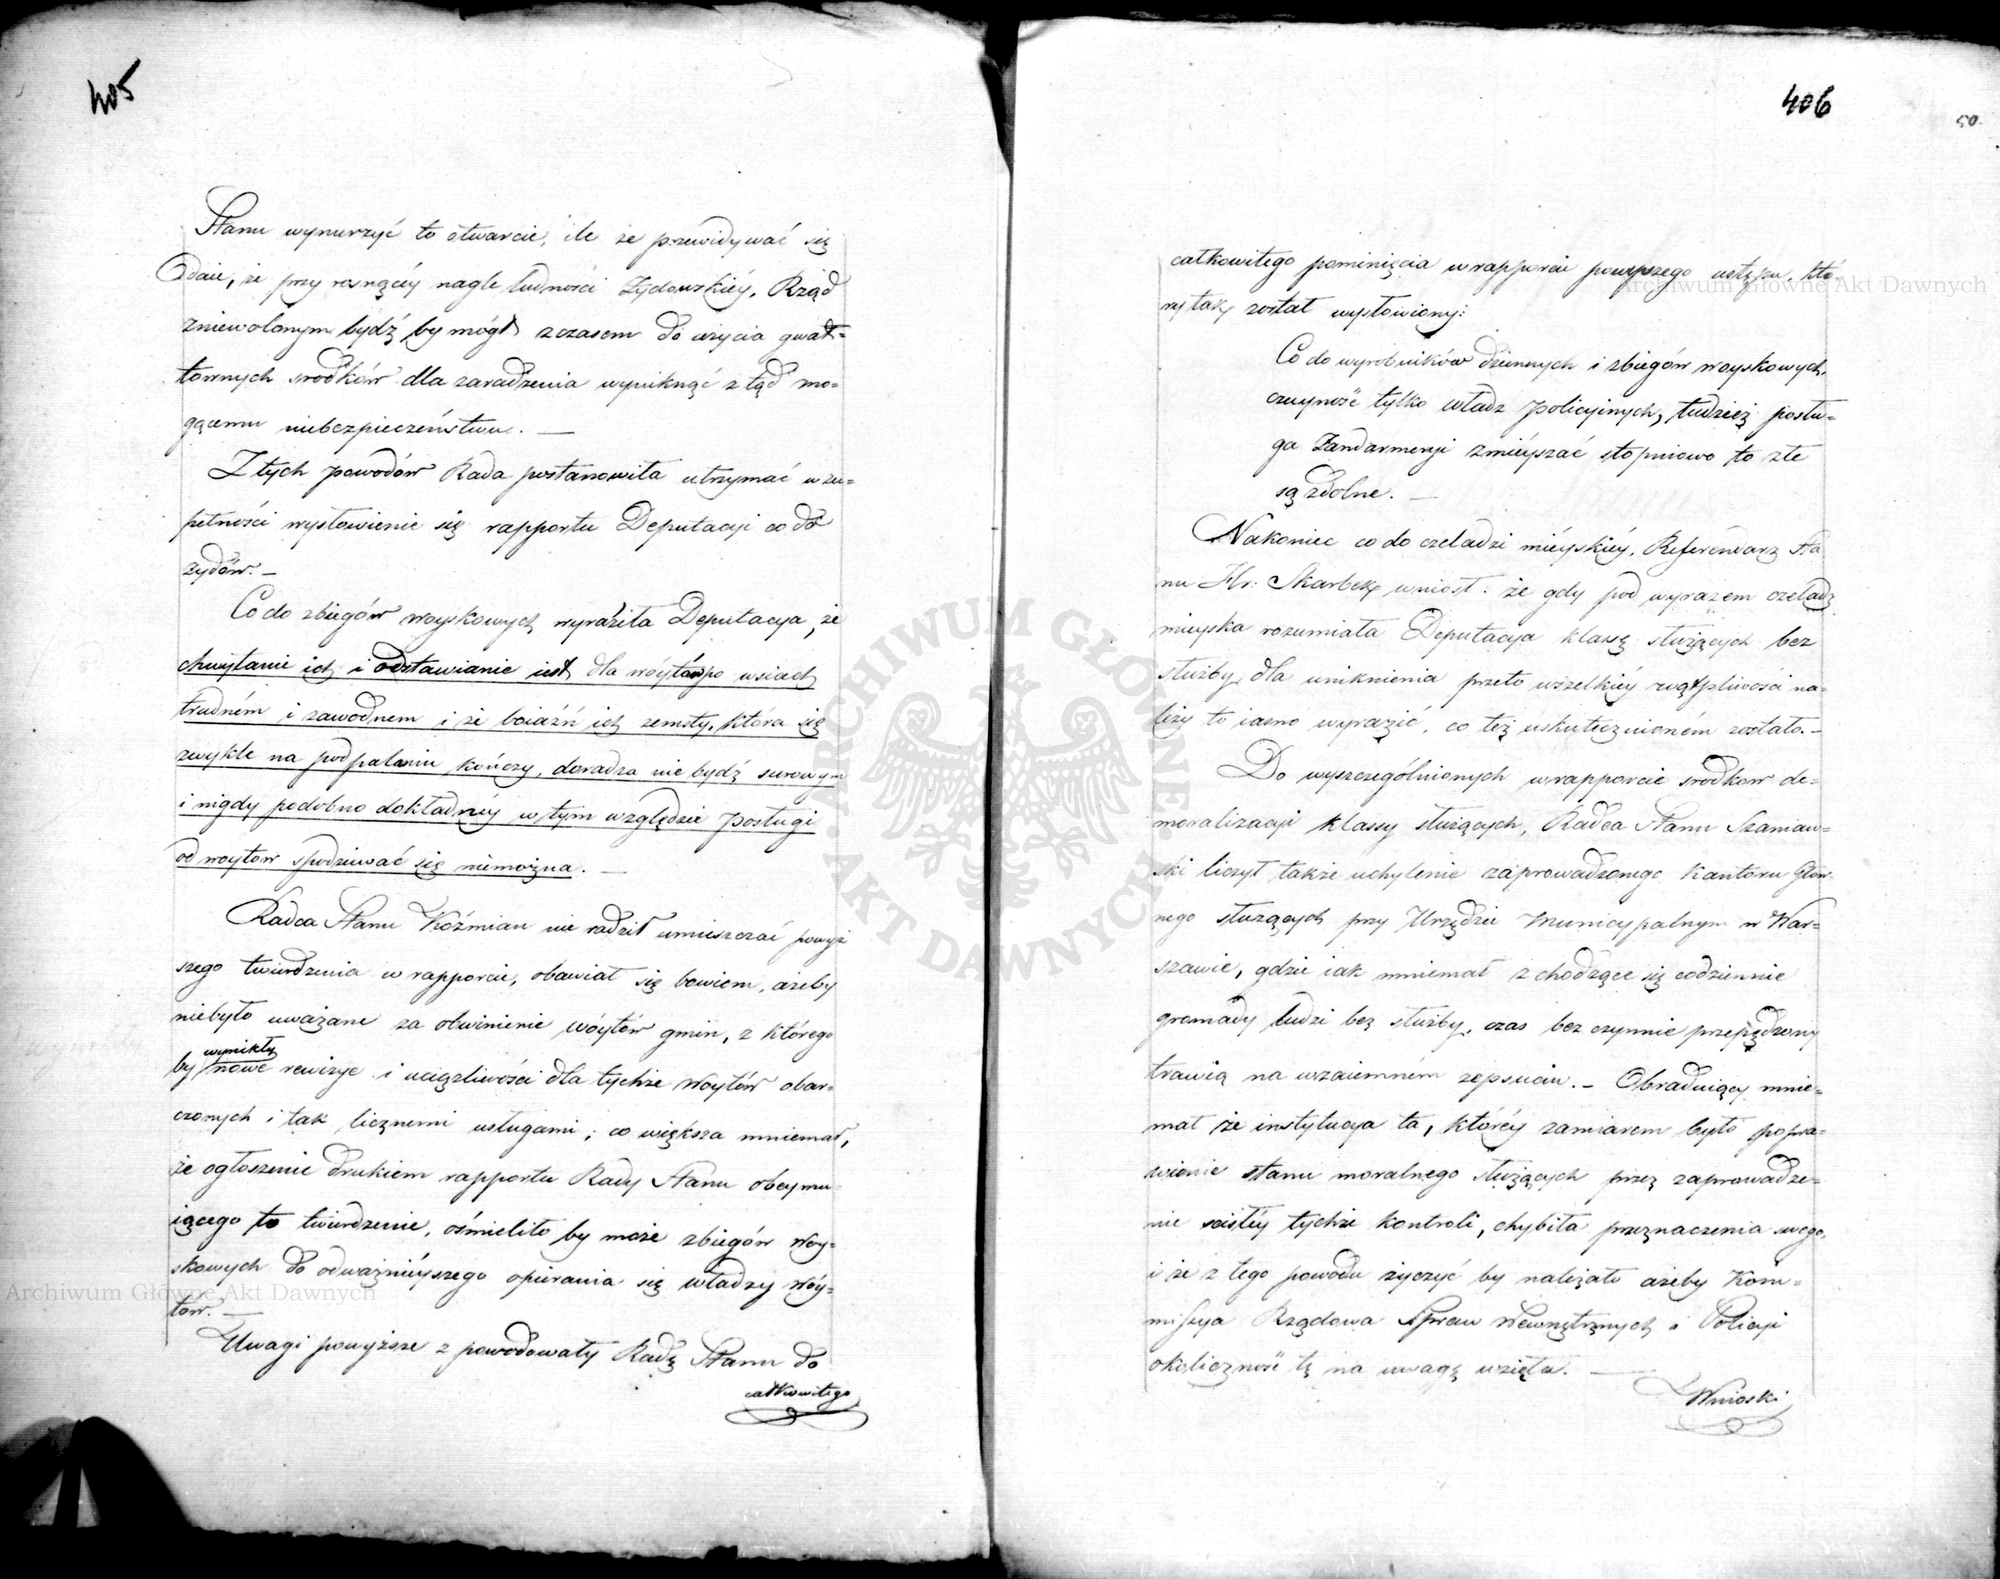 405
Stanu wynurzyć to otwarcie, ile że przewidywać się
daie, że przy rosnącéy nagle ludności Żydowskiéy, Rząd
zniewolonym bydź by mógł z czasem do użycia gwał=
townych srodków dla zaradzenia wyniknąć z tąd mo=
gącemu niebezpieczeństwu. —
Z tych powodów Rada postanowiła utrzymać w zu=
pełności wysłowienie się rapportu Deputacyi co do
żydów. —
Co do zbiegów woyskowych wyraziła Deputacya, że
chwytanie ich i odstawianie iest dla wóytów po wsiach
trudném i zawodnem i że boiaźń ich zemsty, która się
zwykle na podpalaniu kończy, doradza nie bydź surowym
i nigdy podobno dokładnéy w tym względzie posługi
od woytów spodziewać się niemożna. —
Radca Stanu Koźmian nie radził umieszczać powyż
szego twierdzenia w rapporcie, obawiał się bowiem, ażeby
niebyło uważane za obwinienie wóytów gmin, z którego
by wynikły nowe rewizye i uciążliwości dla tychże Woytów obar=
czonych i tak licznemi usługami; co większa mniemał,
że ogłoszenie drukiem rapportu Rady Stanu obeymu=
iącego to twierdzenie, ośmieliło by może zbiegów Woy=
skowych do odważnieyszego opierania się władzy Wóy=
tów. —
Uwagi powyższe z powodowały Radę Stanu do
całkowitego
406
50.
całkowitego pominięcia w rapporcie powyższego ustępu, któ=
ry tak zostal wysłowiony:
Co do wyrobników dziennych i zbiegów woyskowych,
czuyność tylko władz policyinych, tudzież posłu=
ga Żandarmeryi zmieyszać stopniowo to złe
są zdolne. —
Nakoniec co do czeladzi mieyskiéy, Referendarz Sta
nu Hr: Skarbek wniosł. że gdy pod wyrazem czeladź
mieyska rozumiała Deputacya klassę służących bez
służby, dla uniknienia przeto wszelkiéy wątpliwości na=
leży to iasno wyrazić, co też uskutecznioném zostało. —
Do wyszczególnionych w rapporcie srodkow de=
moralizacyi klassy służących, Radca Stanu Szaniaw=
ski liczył także uchylenie zaprowadzonego Kantoru Głów
nego służących przy Urzędzie Municypalnym w War=
szawie, gdzie iak mniemał z chodzące się codziennie
gromady ludzi bez służby, czas bez czynnie przepędzony
trawią na wzaiemném zepsuciu. — Obraduiący mnie=
mał że instytucya ta, któréy zamiarem było popra=
wienie stanu moralnego służących przez zaprowadze=
nie scisłéy tychże kontroli, chybiła przeznaczenia swego,
i że z tego powodu życzyć by należało ażeby Kom=
missya Rządowa Spraw Wewnętrznych i Policyi
okoliczność tę na uwagę wzięła. —
Wnioski
Archiwum Główne Akt Dawnych
Archiwum Główne Akt Dawnych
ARCHIWUM GŁÓWNE AKT DAWNYCH